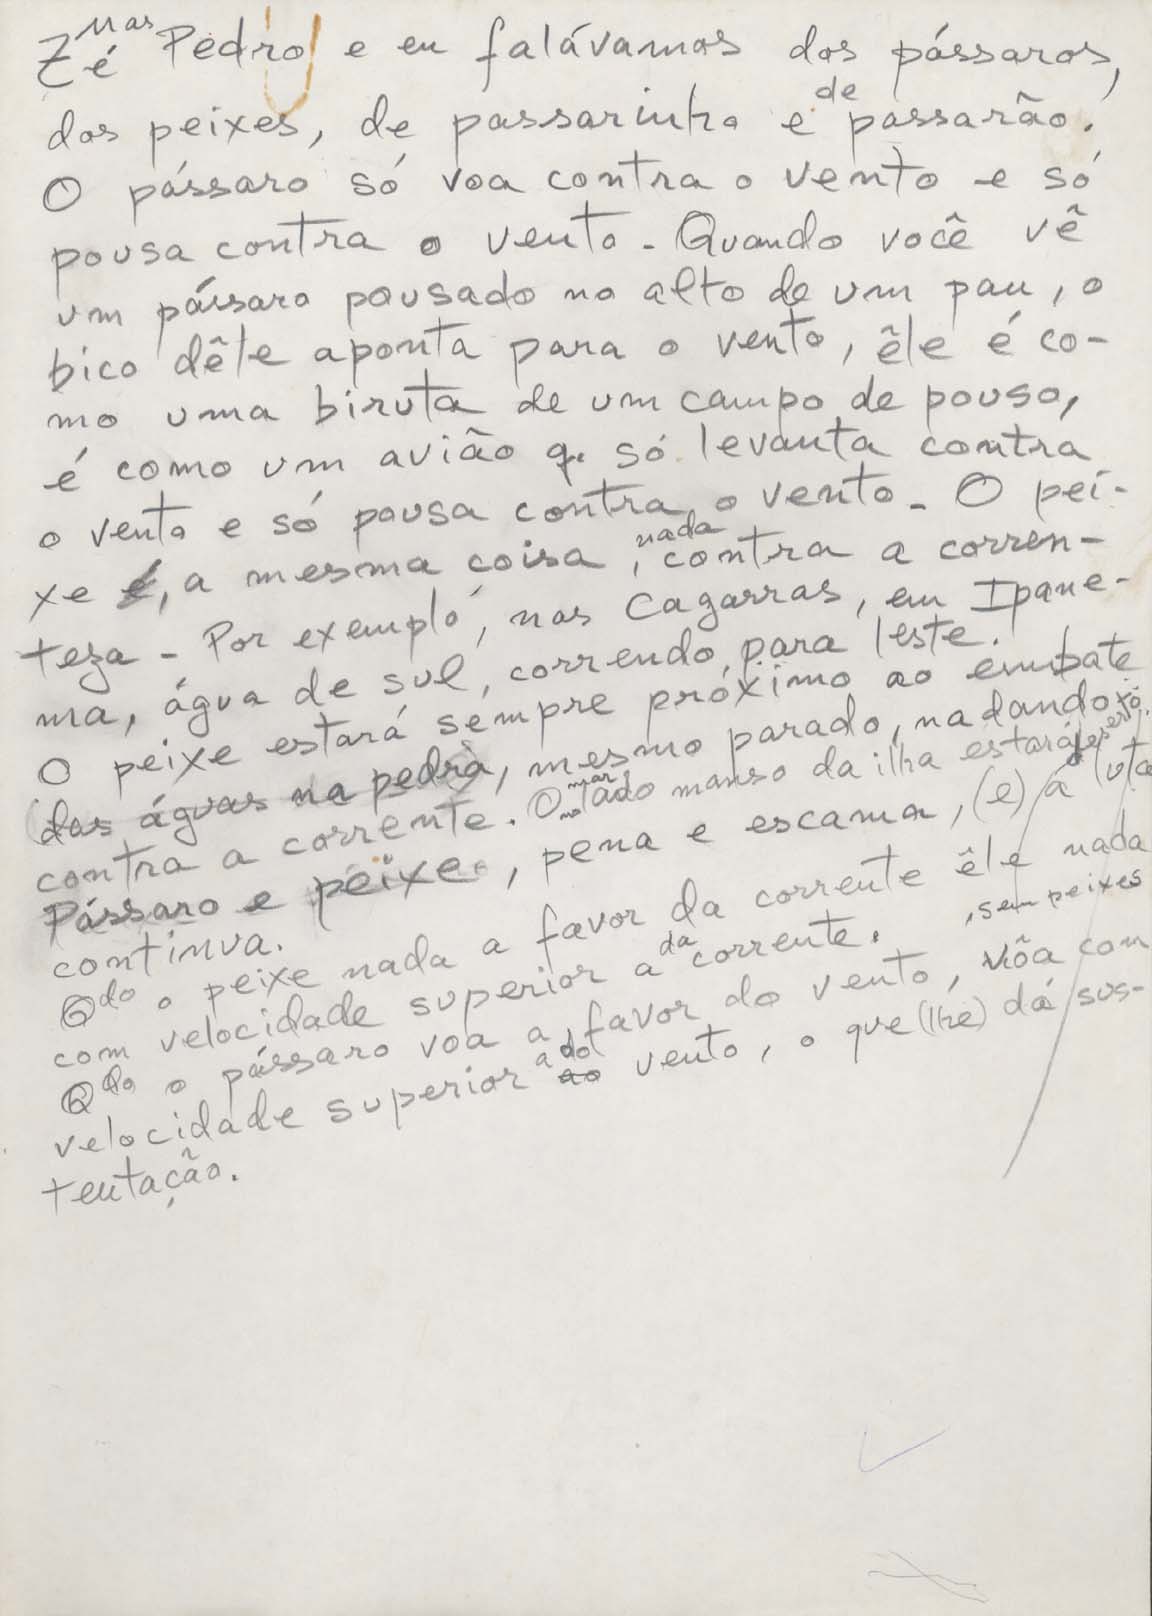 mas
Zé Pedro e eu falávamos dos pássaros,
dos peixes, de passarinho e de passarão.
O pássaro só voa contra o vento e só
pousa contra o vento. Quando você vê
um pássaro pousado no alto de um pau, o
bico dêle aponta para o vento, êle é co-
mo uma biruta de um campo de pouso,
é como um avião q. só levanta contra
o vento e só pousa contra o vento. O pei-
xe é, a mesma coisa, nada contra a corren-
teza - Por exemplo, nas Cagarras, em Ipane-
ma, água de sul, correndo para leste.
O peixe estará sempre próximo ao embate
(das águas na pedra, mesmo parado, nadando
contra a corrente. O mar no lado manso da ilha estará
Pássaro e peixe, pena e escama, (e) a luta
continua. , sem peixes
Qdo o peixe nada a favor da corrente êle nada
com velocidade superior a da corrente.
Qdo o pássaro voa a favor do vento, vôa com
velocidade superior ao a do vento, o que (lhe) dá sus-
tentação.